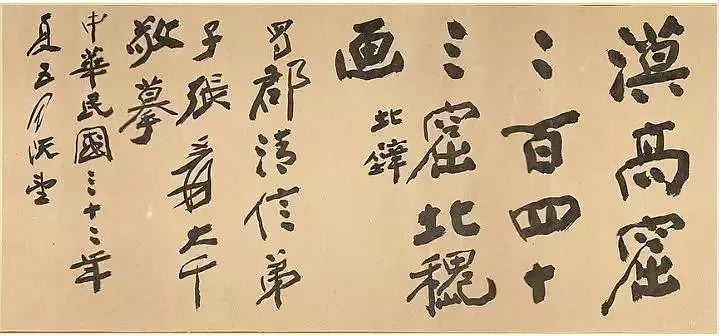 漠高窟
二百四十
三窟北魏
画
北
蜀郡清信弟
子張爰大千
敬摹
中華民國三十二年
夏五月既望